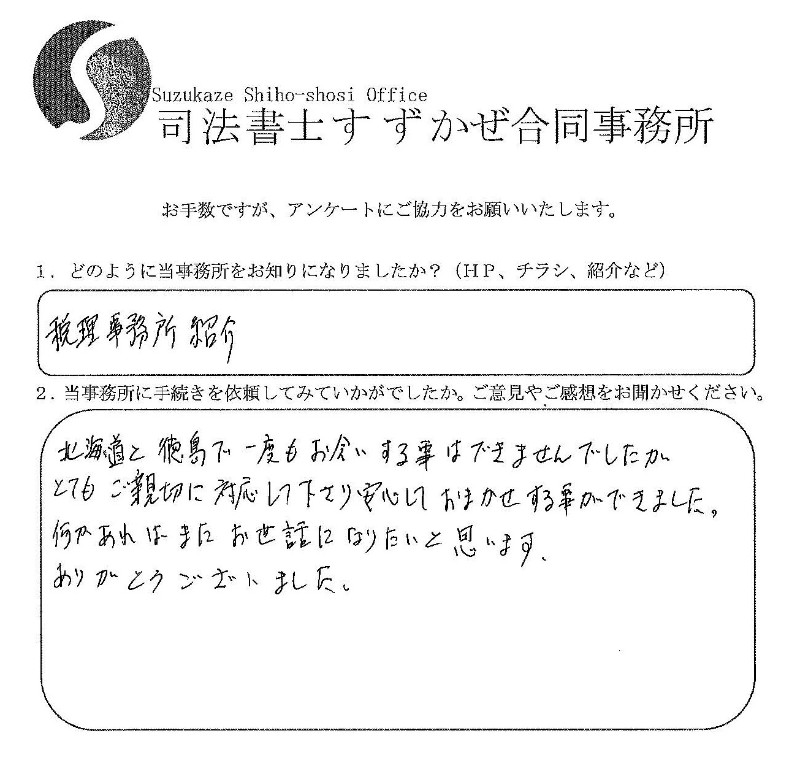 Suzukaze Shiho-shosi Office
司法書士すずかぜ合同事務所
お手数ですが、アンケートにご協力をお願いいたします。
1．どのように当事務所をお知りになりましたか？（ＨＰ、チラシ、紹介など）
税理事務所 紹介
2．当事務所に手続きを依頼してみていかがでしたか。ご意見やご感想をお聞かせください。
北海道と徳島で一度もお会いする事はできませんでしたが
とてもご親切に対応して下さり安心しておまかせする事ができました。
何かあればまたお世話になりたいと思います、
ありがとうございました。